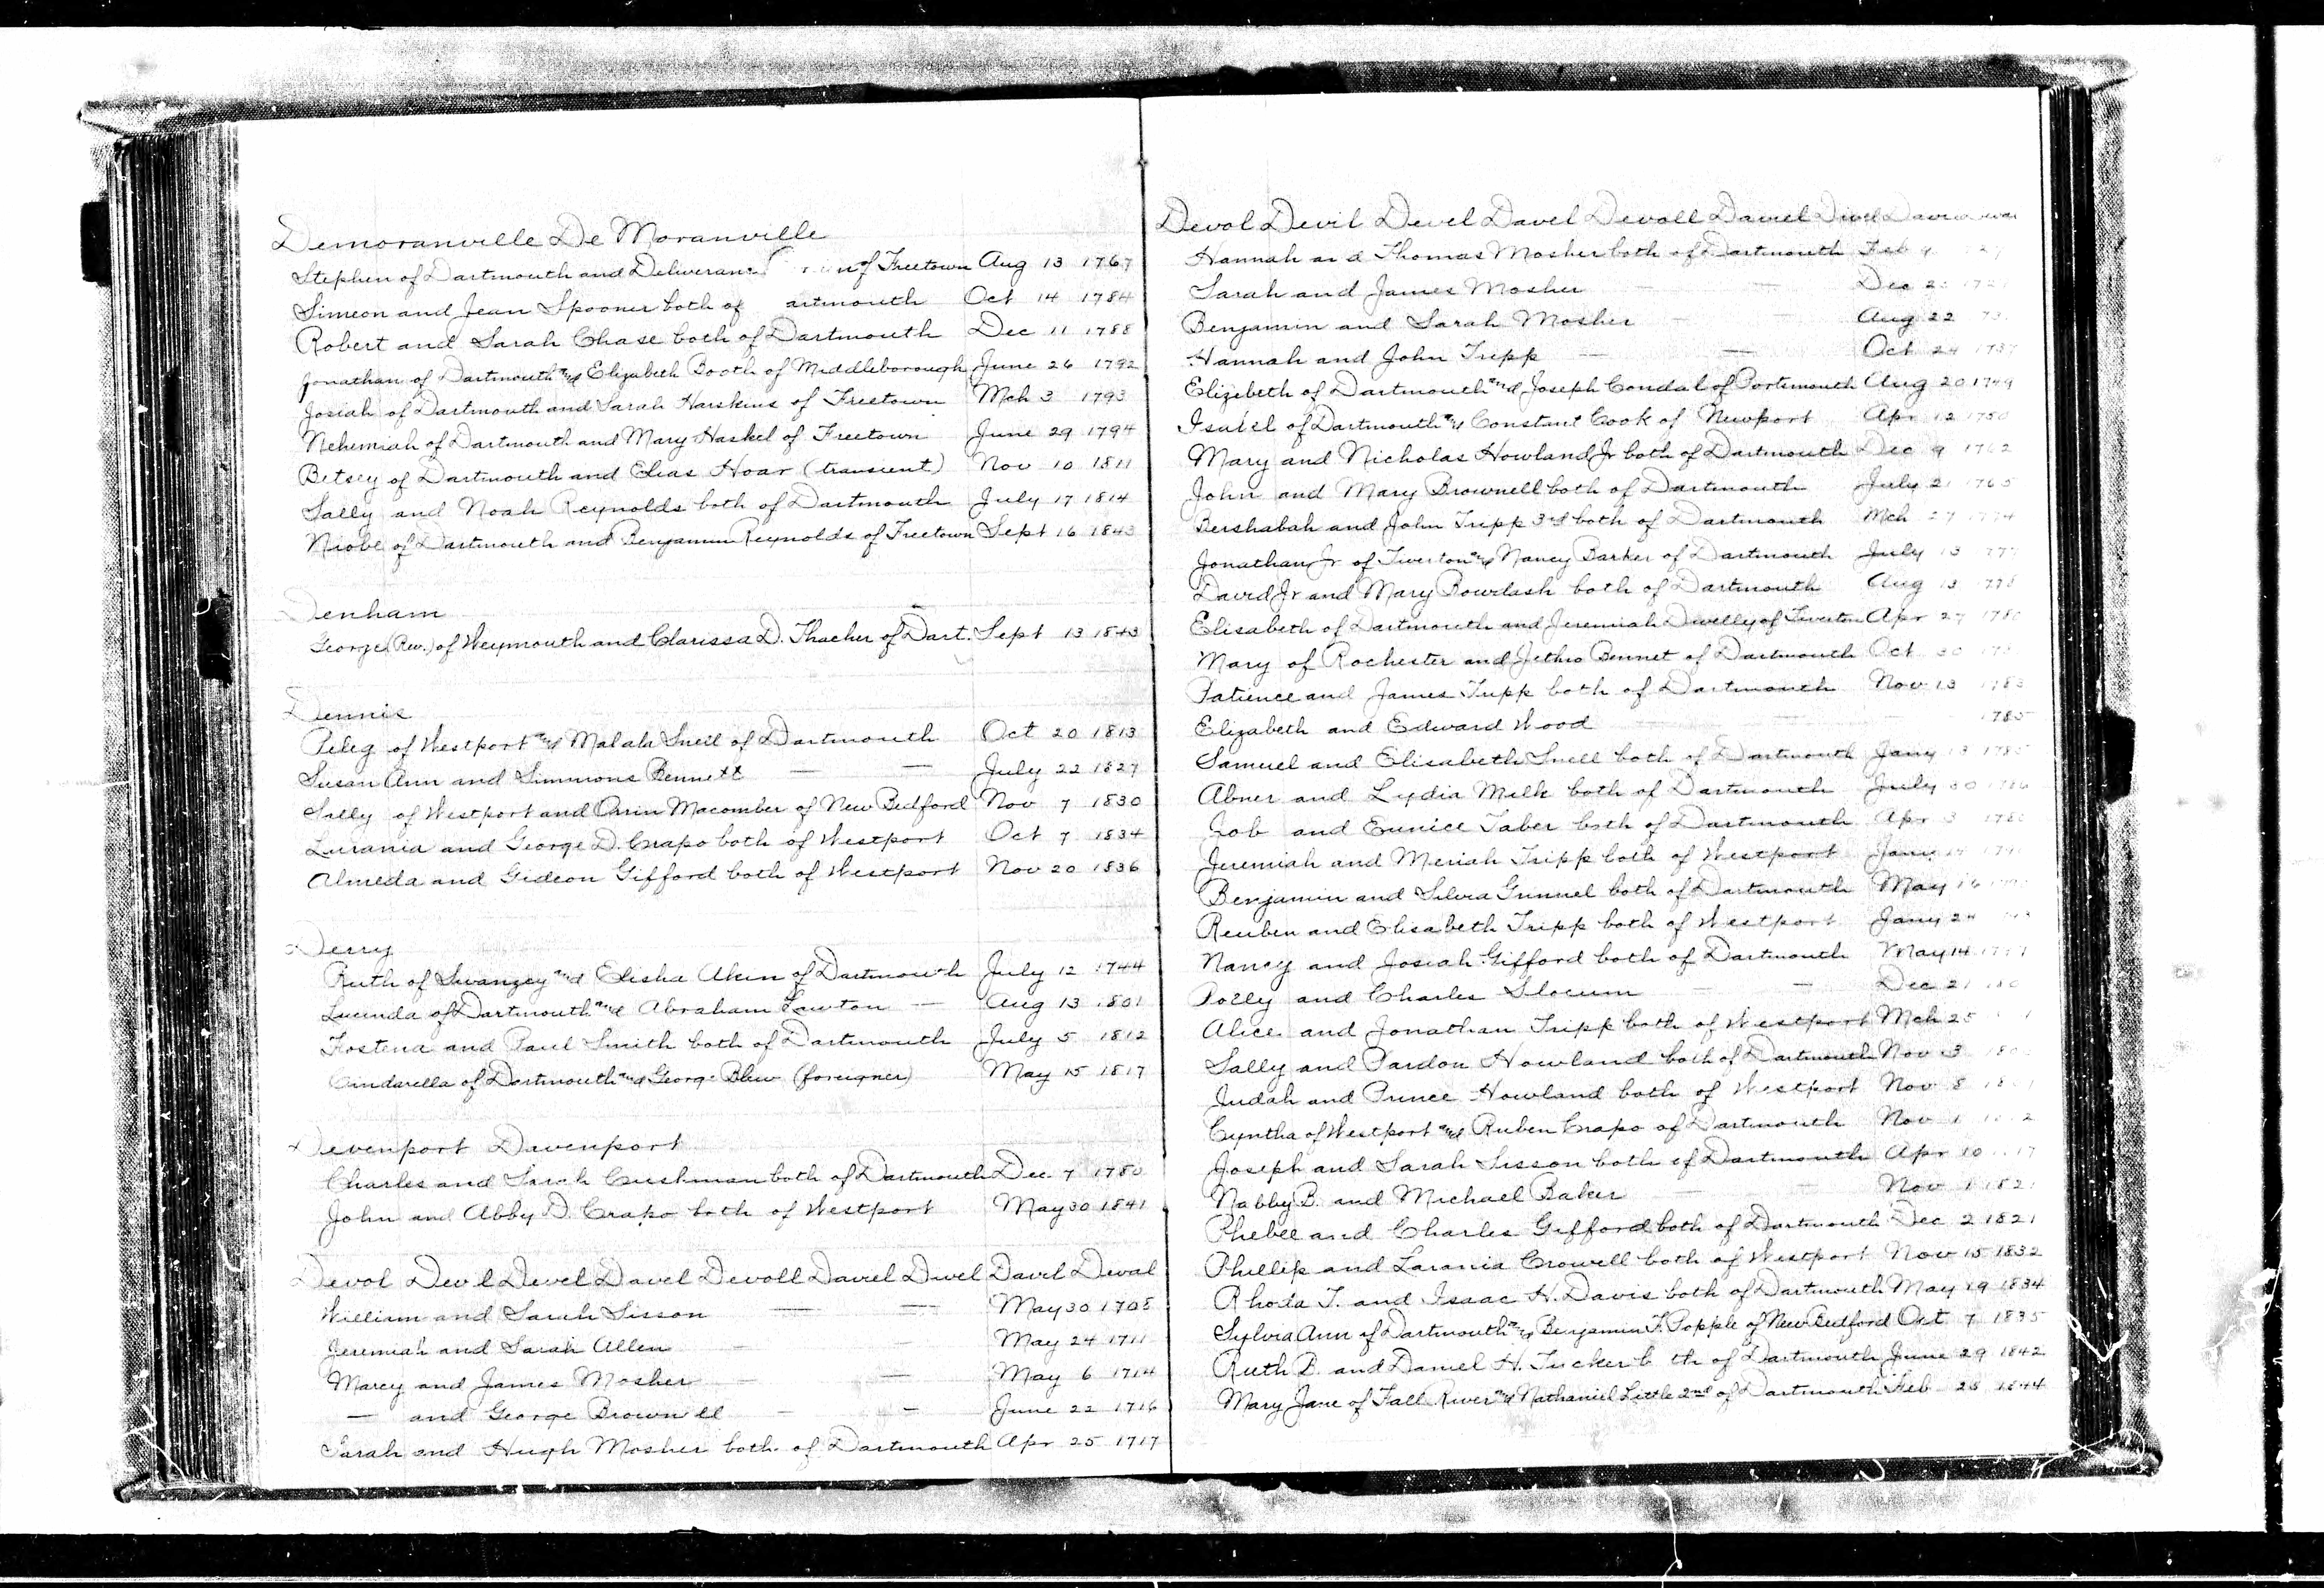 Demoranville De Moranville
Stephen of Dartmouth and Deliverance of Freetown Aug 13 1767
Simeon and Jean Spooner both of artmouth Oct 14 1784
Robert and Sarah Chase both of Dartmouth Dec 11 1788
Jonathan of Dartmouth and Elizabeth Booth of Middleborough June 26 1792
Josiah of Dartmouth and Sarah Harskins of Freetown Mch 3 1793
Nehemiah of Dartmouth and Mary Haskel of Freetown June 29 1794
Betsey of Dartmouth and Elias Hoar (transient) Nov 10 1811
Sally and Noah Reynolds both of Dartmouth July 17 1814
Niobe of Dartmouth and Benjamin Reynolds of Freetown Sept 16 1843
Denham
George (Rev.) of Weymouth and Clarissa D. Thacher of Dart. Sept 13 1843
Dennis
Peleg of Westport and Malah Sneil of Dartmouth Oct 20 1813
Susan Ann and Simmons Bennett — — July 22 1827
Sally of Westport and Orrin Macomber of New Bedford Nov 7 1830
Lurania and George D. Crapo both of Westport Oct 7 1834
Almeda and Gideon Gifford both of Westport Nov 20 1836
Derry
Ruth of Swanzey and Elisha Akin of Dartmouth July 12 1744
Lucinda of Dartmouth and Abraham Lawton — Aug 13 1801
Fostena and Paul Smith both of Dartmouth July 5 1812
Cindarella of Dartmouth and George Blew (foreigner) May 15 1817
Devenport Davenport
Charles and Sarah Cushman both of Dartmouth Dec 7 1780
John and Abby D. Crapo both of Westport May 30 1841
Devol Devil Devel Davel Devoll Daviel Divel Davil Deval
William and Sarah Sisson — — May 30 1708
Jeremiah and Sarah Allen — — May 24 1711
Marcy and James Mosher — — May 6 1714
— and George Brownell — — June 22 1716
Sarah and Hugh Mosher both of Dartmouth Apr 25 1717
Devol Devil Devel Davel Devoll Daviel Divel
Hannah and Thomas Mosher both of Dartmouth Feb 9
Sarah and James Mosher — — Dec
Benjamin and Sarah Mosher — — Aug 22
Hannah and John Tripp — — Oct 24 1737
Elizebeth of Dartmouth and Joseph Condal of Portsmouth Aug 20 1749
Isabel of Dartmouth and Constant Cook of Newport Apr 12 1750
Mary and Nicholas Howland Jr both of Dartmouth Dec 9 1762
John and Mary Brownell both of Dartmouth July 21 1765
Bershabah and John Tripp 3rd both of Dartmouth Mch 27 1774
Jonathan Jr of Tiverton and Nancy Barker of Dartmouth July 13
David Jr and Mary Bowdash both of Dartmouth Aug 13 1778
Elisabeth of Dartmouth and Jeremiah Dwelly of Tiverton Apr 27 1780
Mary of Rochester and Jethro Bennet of Dartmouth Oct 30
Patience and James Tripp both of Dartmouth Nov 13 1783
Elizabeth and Edward Wood — — 1785
Samuel and Elisabeth Snell both of Dartmouth Jany 13 1785
Abner and Lydia Milk both of Dartmouth July 30 1786
Job and Eunice Taber both of Dartmouth Apr 3
Jeremiah and Meriah Tripp both of Westport Jany
Benjamin and Silvia Gunnel both of Dartmouth May 16
Reuben and Elisabeth Tripp both of Westport Jany 24
Nancy and Josiah Gifford both of Dartmouth May 14
Polly and Charles Slocum — — Dec 21
Alice and Jonathan Tripp both of Westport Mch 25
Sally and Pardon Howland both of Dartmouth Nov 3
Judah and Prince Howland both of Westport Nov 8
Cyntha of Westport and Ruben Crapo of Dartmouth Nov 1
Joseph and Sarah Sisson both of Dartmouth Apr 10
Nabby B. and Michael Baker — — Nov 1 1821
Phebee and Charles Gifford both of Dartmouth Dec 2 1821
Phillip and Larania Crowell both of Westport Nov 15 1832
Rhoda T. and Isaac H. Davis both of Dartmouth May 19 1834
Sylvia Ann of Dartmouth and Benjamin T. Popple of New Bedford Oct 7 1835
Ruth B. and Daniel H. Tucker b th of Dartmouth June 29 1842
Mary Jane of Fall River and Nathaniel Little 2nd of Dartmouth Feb 28 1844